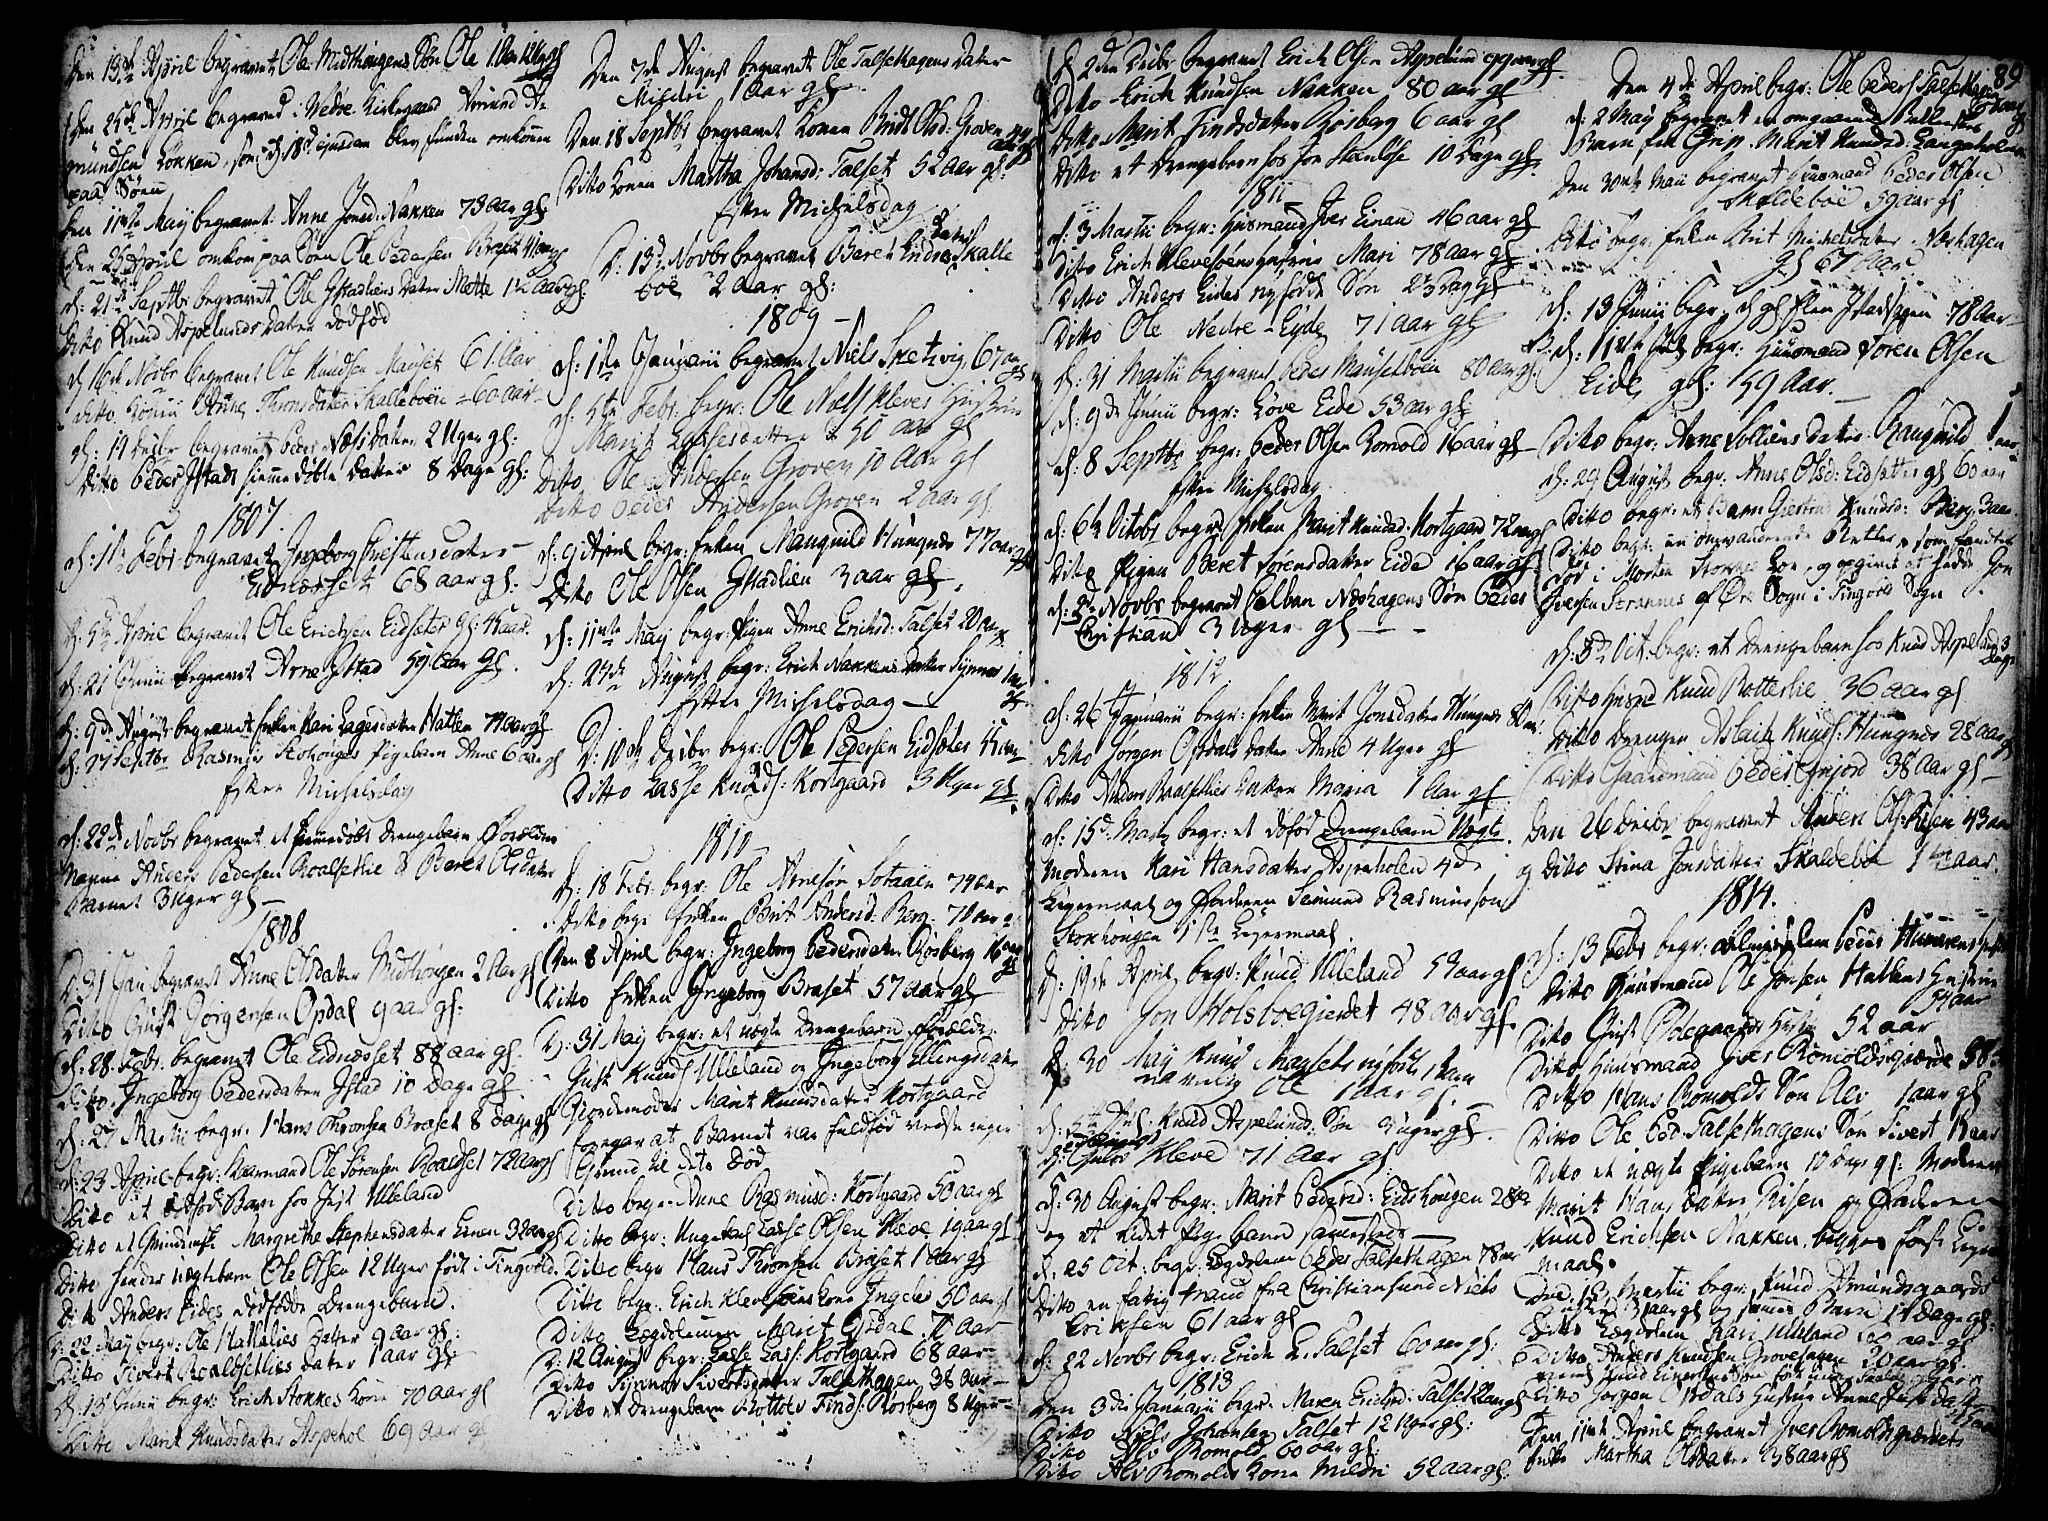 Den 13de April begravet Ole Midthougens Søn Ole 1 Aar 12 Uger gl
den 25de April begraved i Nedre Kirkegaard Amund A-
mundsen Løkken, som d 18de ejusdem blev funden omkommen
paa Søen
den 11te May begravet Anne Jonsd: Nakken 73 aar gl
den 25 April omkom paa Søen Ole Pedersen
d: 21de Septbr begravet Ole Istadliens Dater Mette 1½ Aar gl:
Ditto Knud Aspelunds Dater dødfød
d 16de Novbr begravet Ole Knudsen Mauset 61 Aar
ditto Konen Anne Thronsdater Skalleboen 60 aar
d: 19 Decbr begravet Peder Nielsdater 2 Uger gl:
Ditto Peder Istads hiemmedøbte Datter 8 Dage gl:
1807.
d: 11te Febr begravet Ingeborg Christensdater
Eidnesset 68 aar gl:
d: 5te April begravet Ole Erichsen Eidseter gl: 45 aar
d: 21 Junii begravet Arne Istad 59 aar gl.
d: 9de August begravet Enken Kari Lassesdater Hatten 74 aar gl
d: 27 Septbr Rasmus Stokhougs Pigebarn Anne 6 aar gl
Efter Michelsdag
d: 22de Novbr begravet et hiemmedøbt Drengebarn Forældrenes
Navne Anders Pedersen Roalsetlie & Beret Olsdater
Barnet 3 Uger gl
1808
D: 31 Jan begravet Anne Olsdater Midthougen 2 Aar gl
Ditto Gust Jørgensen Opdal 9 aar gl:
d: 28 Febr. begravet Ole Eidnesset 88 aar gl.
Ditto Ingeborg Pedersdater Istad 10 Dage gl
d: 27 Martii begr. Hans Thronsen Braset 8 dage gl
d: 23 April begr. Ole Sørensen Roaldset 72 aar gl
Ditto et dødfød Barn hos Jost Ulleland
Ditto et Margrethe Stephensdater Einen 32 aar gl
Ditto hendes uægtebarn Ole Olsen 12 Uger født i Tingvold
Ditto Anders Eides dødfødde Drengebarn.
d: 22 May begr: Ole Hatlelies Dater 9 aar gl:
Ditto Sivert Roaldsetlies Dater 1 aar gl:
D: 15 Junii begr: Erich Stokkes Kone 70 aar gl
Ditto Marit Knudsdater Aspehol 69 Aar gl
Den 7de August begravet Ole Talsethagens Dater
Mildri 1 aar gl.
Den 18 Septbr begravet Konen Brit Olsd: Groven 44
aar gl
Ditto Konen Martha Johansd: Talset 52 aar gl:
Efter Michelsdag
D: 13de Novbr begravet Beret Endres Dater Skalle
boe 2 aar gl:
1809
d: 1ste Januarii begravet Niels Sketvig 67 aar gl
d: 5te Febr: begr: Ole Niels Kleves Hustru
Marit Lassesdatter 50 aar gl
Ditto Ole Andersen Groven 10 Aar gl
Ditto Peder Andersen Groven 2 aar gl.
d: 9 April begr: Enken Rangnild Hungnes 77 aar gl
Ditto Ole Olsen Istadlien 3 aar gl.
d: 11te May begr: Pigen Anne Eriksd: Talset 20 aar
d: 27de August begr: Erich Nakkens Dater Synnev 1 aar
gl.
Efter Michelsdag
D: 10de Decbr begr: Ole Pedersen Eidseter 45 aar
Ditto Lasse Knuds: Korsgaard 3 Uger gl
1810
d: 18 Febr: begr: Ole Arnesøn Sotaaen 74 aar
Ditto begr Enken Brit Andersd: Berg 70 aar gl
Den 8 April begr: Ingeborg Pedersdater Røsberg 16 aar
gl
Ditto Enken Ingeborg Braset 57 aar gl
D: 31 May begr: et uægte Drengebarn Forældre:
Gust Knuds Ulleland og Ingeborg Ellingsdater
Giordemoder Marit Knudsdater Korsgaard
foregav at Barnet var fuldfød vedste ingen
Grund til dets Død
Ditto begr: Anne Rasmusd: Korsgaard 50 aar gl
Ditto begr: Ungekarl Lasse Olsen Kleve 19 aar gl
Ditto begr Hans Thronsen Braset 1 Aar gl
Ditto begr: Erich Klevesøens Kone Ingeler 50 aar gl
Ditto Lægdelemen Marit Opdal 70 aar
D: 12 August begr: Lasse Lass: Korsgaard 68 aar
Ditto Synnev Sivertsdater Talsethagen 38 aar
Ditto et Drengebarn Rottolv Finds: Røsberg 8 Uger
D 2den Decbr begravet Erich Olsen Aspelund
Ditto Erich Knudsen Nakken 80 aar gl
Ditto Marit Findsdater Røsberg 6 aar gl
Ditto et Drengebarn hos Jon 10 Dage gl.
1811
d: 3 Martii begr: Huusmand Iver Einan 46 aar gl
Ditto Erich Klevesøens Mari 78 aar gl
Ditto Anders Eides nyfødde Søn 23 Dag gl
Ditto Ole Nedre-Eyde 71 aar gl
d: 31 Martii begravet Peder Mauseboen 80 aar gl:
d: 9de Junii begr: Eide 53 aar gl
d: 8 Septbr begr: Peder Olsen Romold 16 aar gl
Efter Michelsdag
d: 6te Octobr begr: Enken Marit Knudsd: Korsgaard 72 aar gl
Ditto Pigen Beret Sørensdater Eide 16 aar gl
d: 3de Novbr begravet Halvan Neshagens Søn Peder
Christian 3 Uger gl
1812
d: 26 Januarii begr: Enken Marit Jonsdater Hungnes 80 aar
ditto Jørgen Opdals Dater Anne 4 Uger gl
Ditto Anders Roalsetlies Datter Maria 1 Aar gl
d: 15de Martz begr: et døfød Drengebarn Uægte.
Moderen Kari Hansdater Aspeholen 4de
Leiermaal og Faderen Semund Rasmussøn
Stokhougen 1ste Leiermaal
D: 19de April begr: Knud Ulleland 53 aar gl
Ditto Jon Holsboegierdet 48 aar gl
d: 30 May Knud Mausets nyfødte Barn
navnlig Ole 1 aar gl.
d: 5te Jul. Knud Aspelunds Søn 3 Uger gl.
Kleve 71 Aar gl.
d: 30 August begr: Marit Pedersd: Eidshougen 28 aar
og et lidet Pige barn sammesteds
d. 25 Oct: begr: Lægdelem Peder Talsethagen 78 aar
Ditto en fattig mand fra Christiansund Niels
Eriksen 61 aar gl
d: 22 Novbr begr: Erich L. Talset 60 aar gl:
1813
Den 3die Januarii begr. Maren Erichsd: Talset
Ditto Niels Johansen Talset 12 Uger gl:
Ditto Olv Romold 60 aar gl:
Ditto Alv Romolds Kone Mildri 52 aar gl.
89
Den 4de April begr: Ole Peders Talsethagen
d: 2 May begravet en omgaaende Betlers
Barn fra Grip. Marit Knudsd. Langeholmen
Den 30te Maii begravet Huusmand Peder Olsen
Skoldeboe 59 aar gl
Ditto begr: Enken Brit Michelsdater Norhagen
gl 67 Aar
d: 13 Junii begr: Istadhagen 78 aar
d: 11te July begr: Huusmand Søren Olsen
Eide, gl: 59 Aar.
Ditto begr: Arne Solliens Dater Rangnild 1 aar
d: 29 August begr: Anne Olsd: Eidseter gl 60 aar
Ditto begr: et Barn Giertru Knudsd: Berg 3 aar
Ditto begr: en omvandrende Betler, som fandtes
død i Morten og opgivet at hede Jon
Iversen Strannes af Øre Sogn i Tingvold Sogn
d: 3de Oct: begr: et Drengebarn hos Knud Aspelund 3
Dage
Ditto Knud Botterlie 36 aar gl
Ditto Drengen Aslach Knuds: Hungnes 28 aar gl
Ditto Gaardmand Peder Gnjord 38 aar gl
Den 26 Decbr begravet Anders Ols: Risen 43 aar
og Ditto Stina Jonsdater Skaldebøe 1 aar.
1814.
d: 13 Febr begr: Almisselem Peder
Ditto Huusmand Ole Jonsen Hattens Hustru
54 aar
Ditto Gust Ødegaards Hustru 52 aar
Ditto Huusmand Iver Romoldsgierde 38
Ditto Hans Romolds Søn Olv 1 aar gl
Ditto Ole Ped: Talsethagens Søn Sivert 13 aar
Ditto et uægte Pigebarn 10 dage gl: Moderen
Marit Hansdater Risen og Faderen
Knud Erichsen Nakken, begges første Leyer
maal.
Den 13 Martii begr: Knud Amundsgaards
aar gl og sammes Barn 14 Dage gl:
Ditto Lægdelem Kari Ulleland aar gl.
Ditto Anders Knudsen Grovehagen 20 aar gl.
Ditto Jørgen Opdals Hustru Anne Jensdatter
Den 11te April begravet Iver Romolsgierdets
Enke Martha Olsdater 38 aar gl